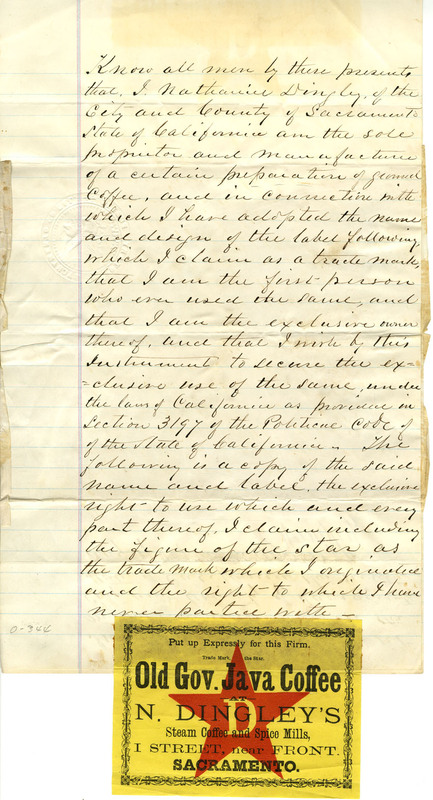 Know all men by these presents
that, I. Nathaniel Dingley, of the
City and County of Sacramento
State of California am the sole
proprietor and manufacturer
of a certain preparation of ground
Coffee, and in connection with
which I have adopted the name
and design of the label following
which I claim as a trade mark,
that I am the first person
who ever used the same, and
that I am the exclusive owner
thereof, and that I wish by this
Instrument to secure the ex-
-clusive use of the same, under
the laws of California as provided in
Section 3197 of the Political Code of
of the State of California. The
following is a copy of the said
name and label, the exclusive
right to use which and every
part thereof, I claim including
the figure of the star as
the trade mark which I originated
and the right to which I have
never parted with—
0-344
Put up Expressly for this Firm.
Trade Mark, the Star.
Old Gov. Java Coffee
AT
N. DINGLEY'S
D
Steam Coffee and Spice Mills,
I STREET, near FRONT.
SACRAMENTO.